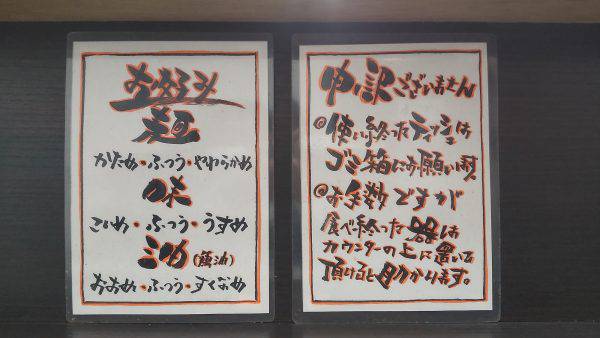 お好み
麺
かため・ふつう・やわらかめ
味
こいめ・ふつう・うすめ
油(鶏油)
おおめ・ふつう・すくなめ
申し訳ございません
◎使い終ったティッシュは
ゴミ箱にお願い致します。
◎お手数ですが
食べ終った器は
カウンターの上に置いて
頂けると助かります。